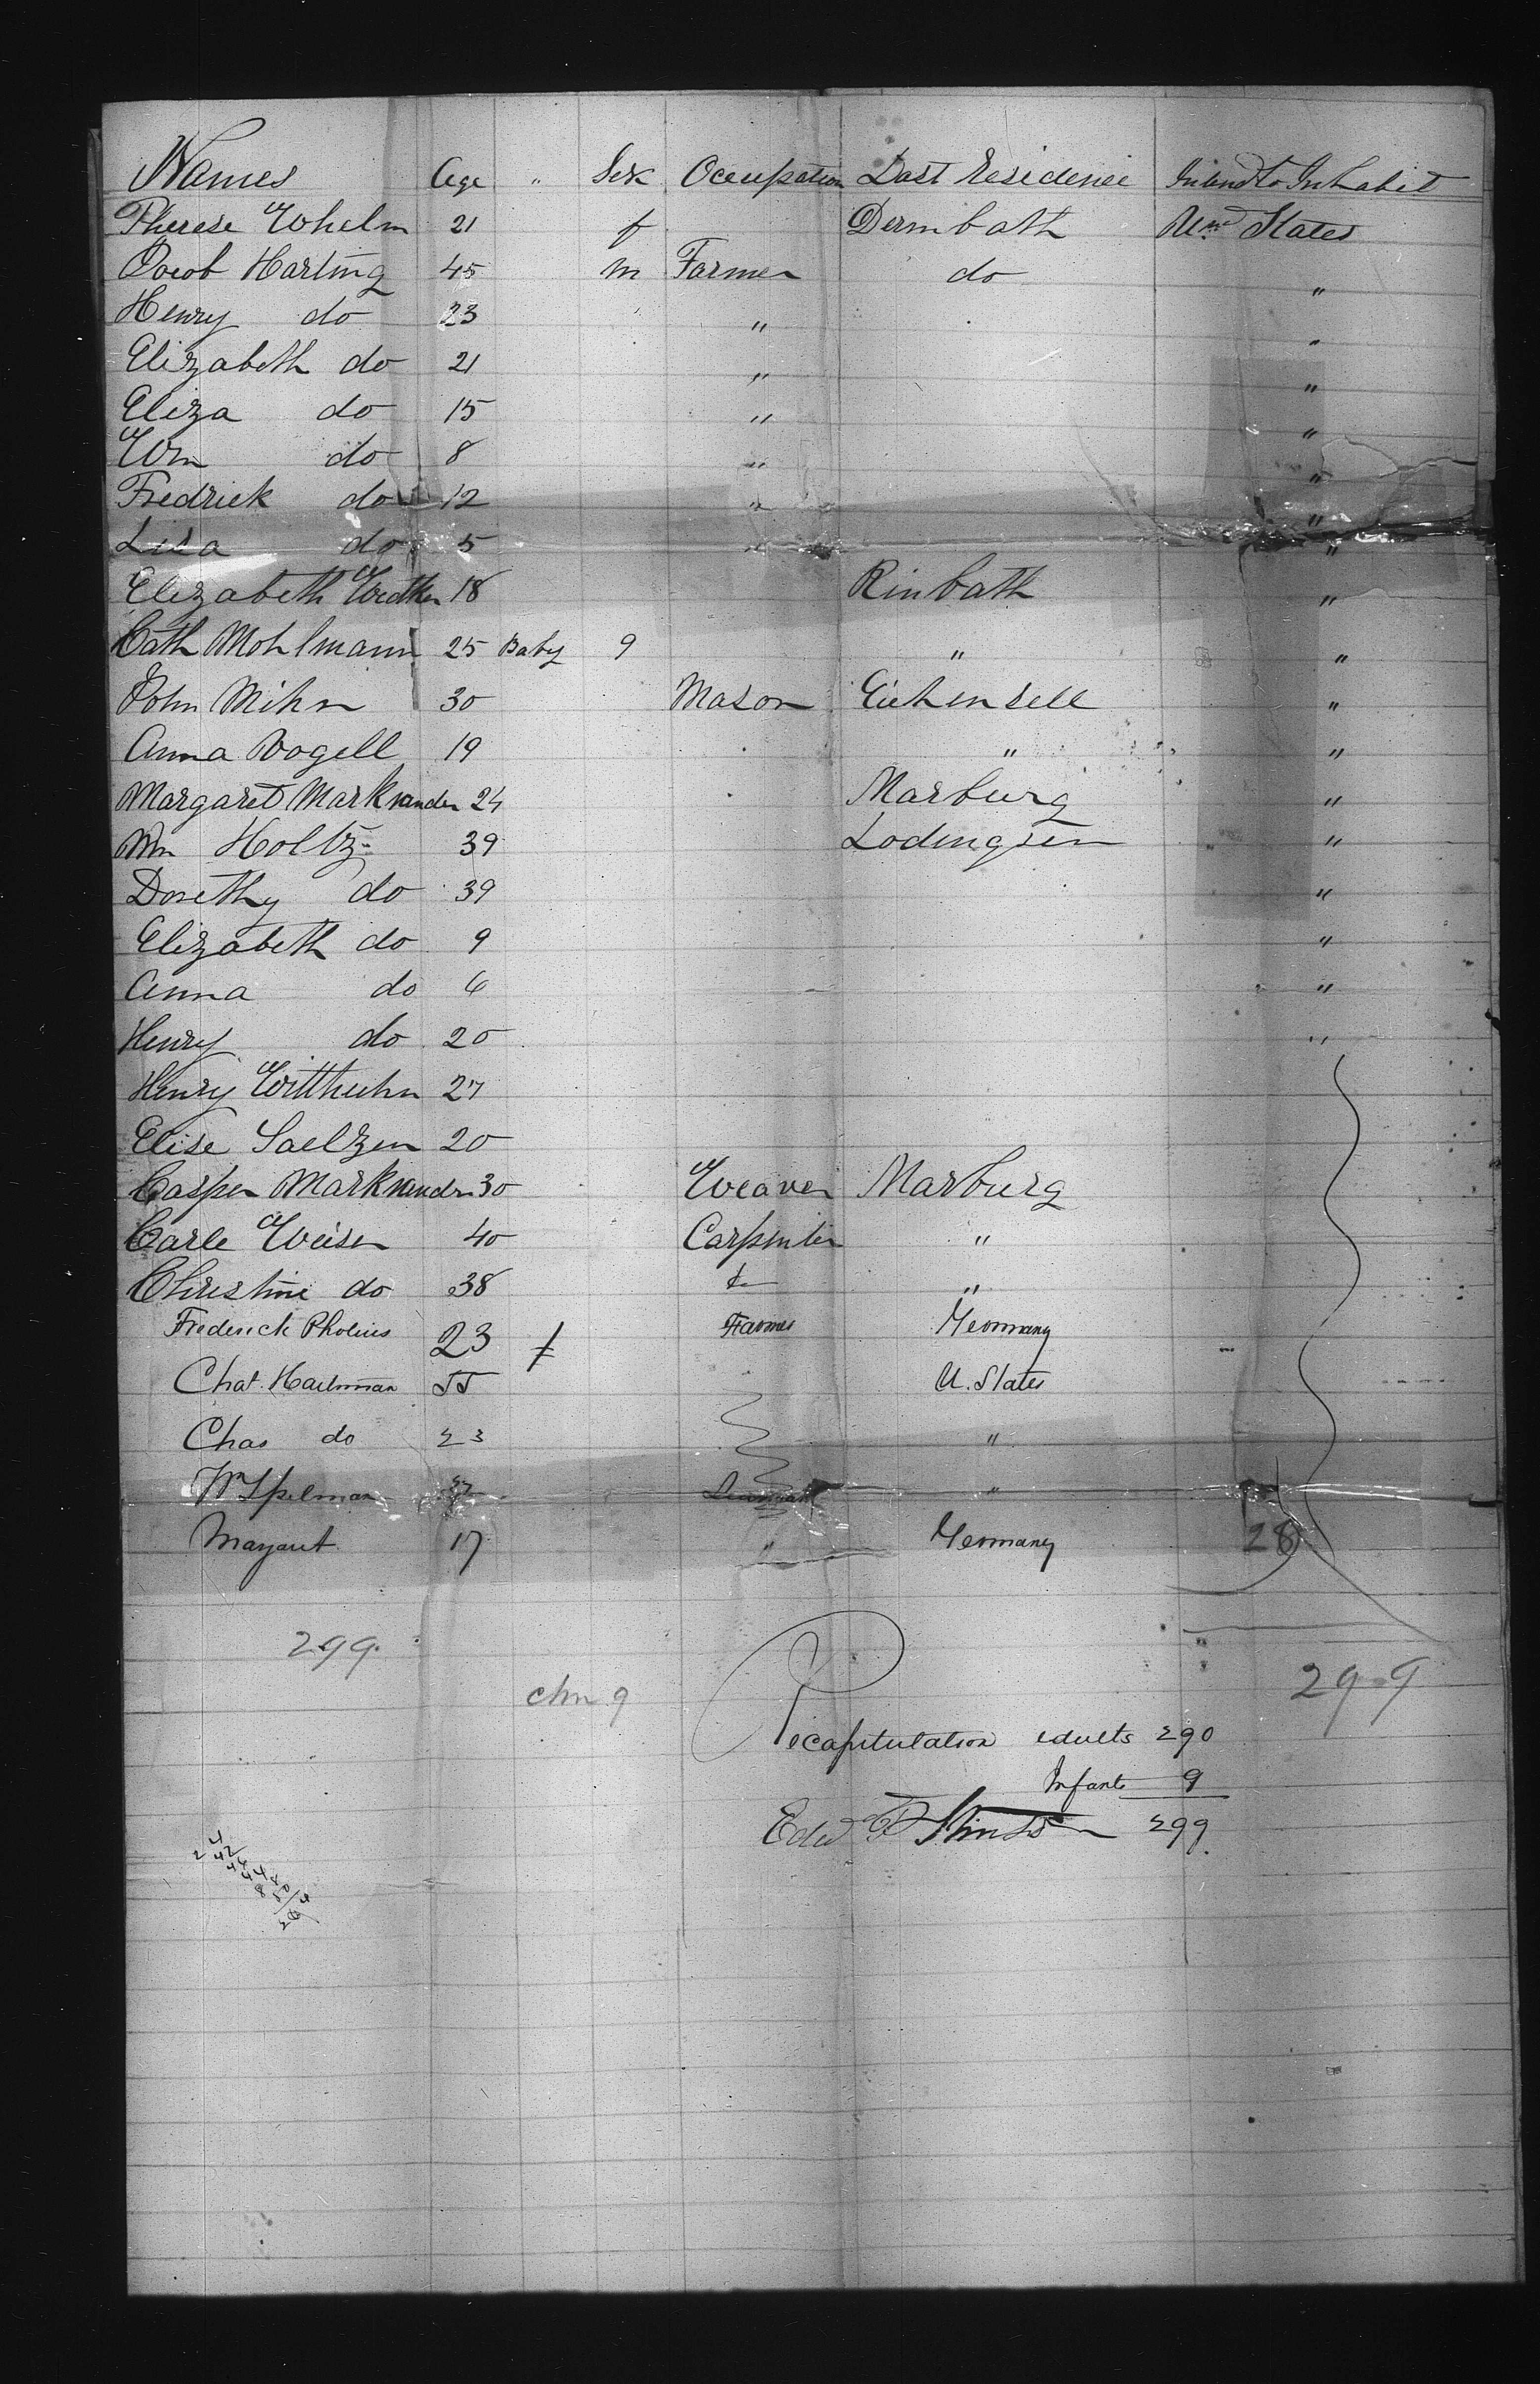 Names Age " Sex Occupation Last Residence Intend to Inhabit
Therese Whelm 21 f Dermbath Un. States
Jacob Harting 45 m Farmer do "
Henry do 23 " "
Elizabeth do 21 " "
Eliza do 15 " "
Wm do 8 " "
Fredrick do 12 " "
Lisa do 5 " "
Elizabeth 18 Rinbath "
Cath Mohlmann 25 Baby 9 " "
John Mihn 30 Mason Eichensell "
Anna Vogell 19 " "
Margaret Markvander 24 Marburg "
Wm Holtz 39 Lodingsen "
Dorethy do 39 "
Elizabeth do 9 "
Anna do 6 "
Henry do 20 "
Henry Witthuhn 27
Elise Saelzen 20
Casper Markvander 30 Weaver Marburg
Carle Weisen 40 Carpenter "
Christine do 38 "
Frederick 23 Farmer Germany
Chat. 55 U. States
Chas do 23 "
Wm Spelman "
Margaret 17 " Germany 28
299.
299
chn 9
Recapitulation adults 290
Infants 9
Edw 299.